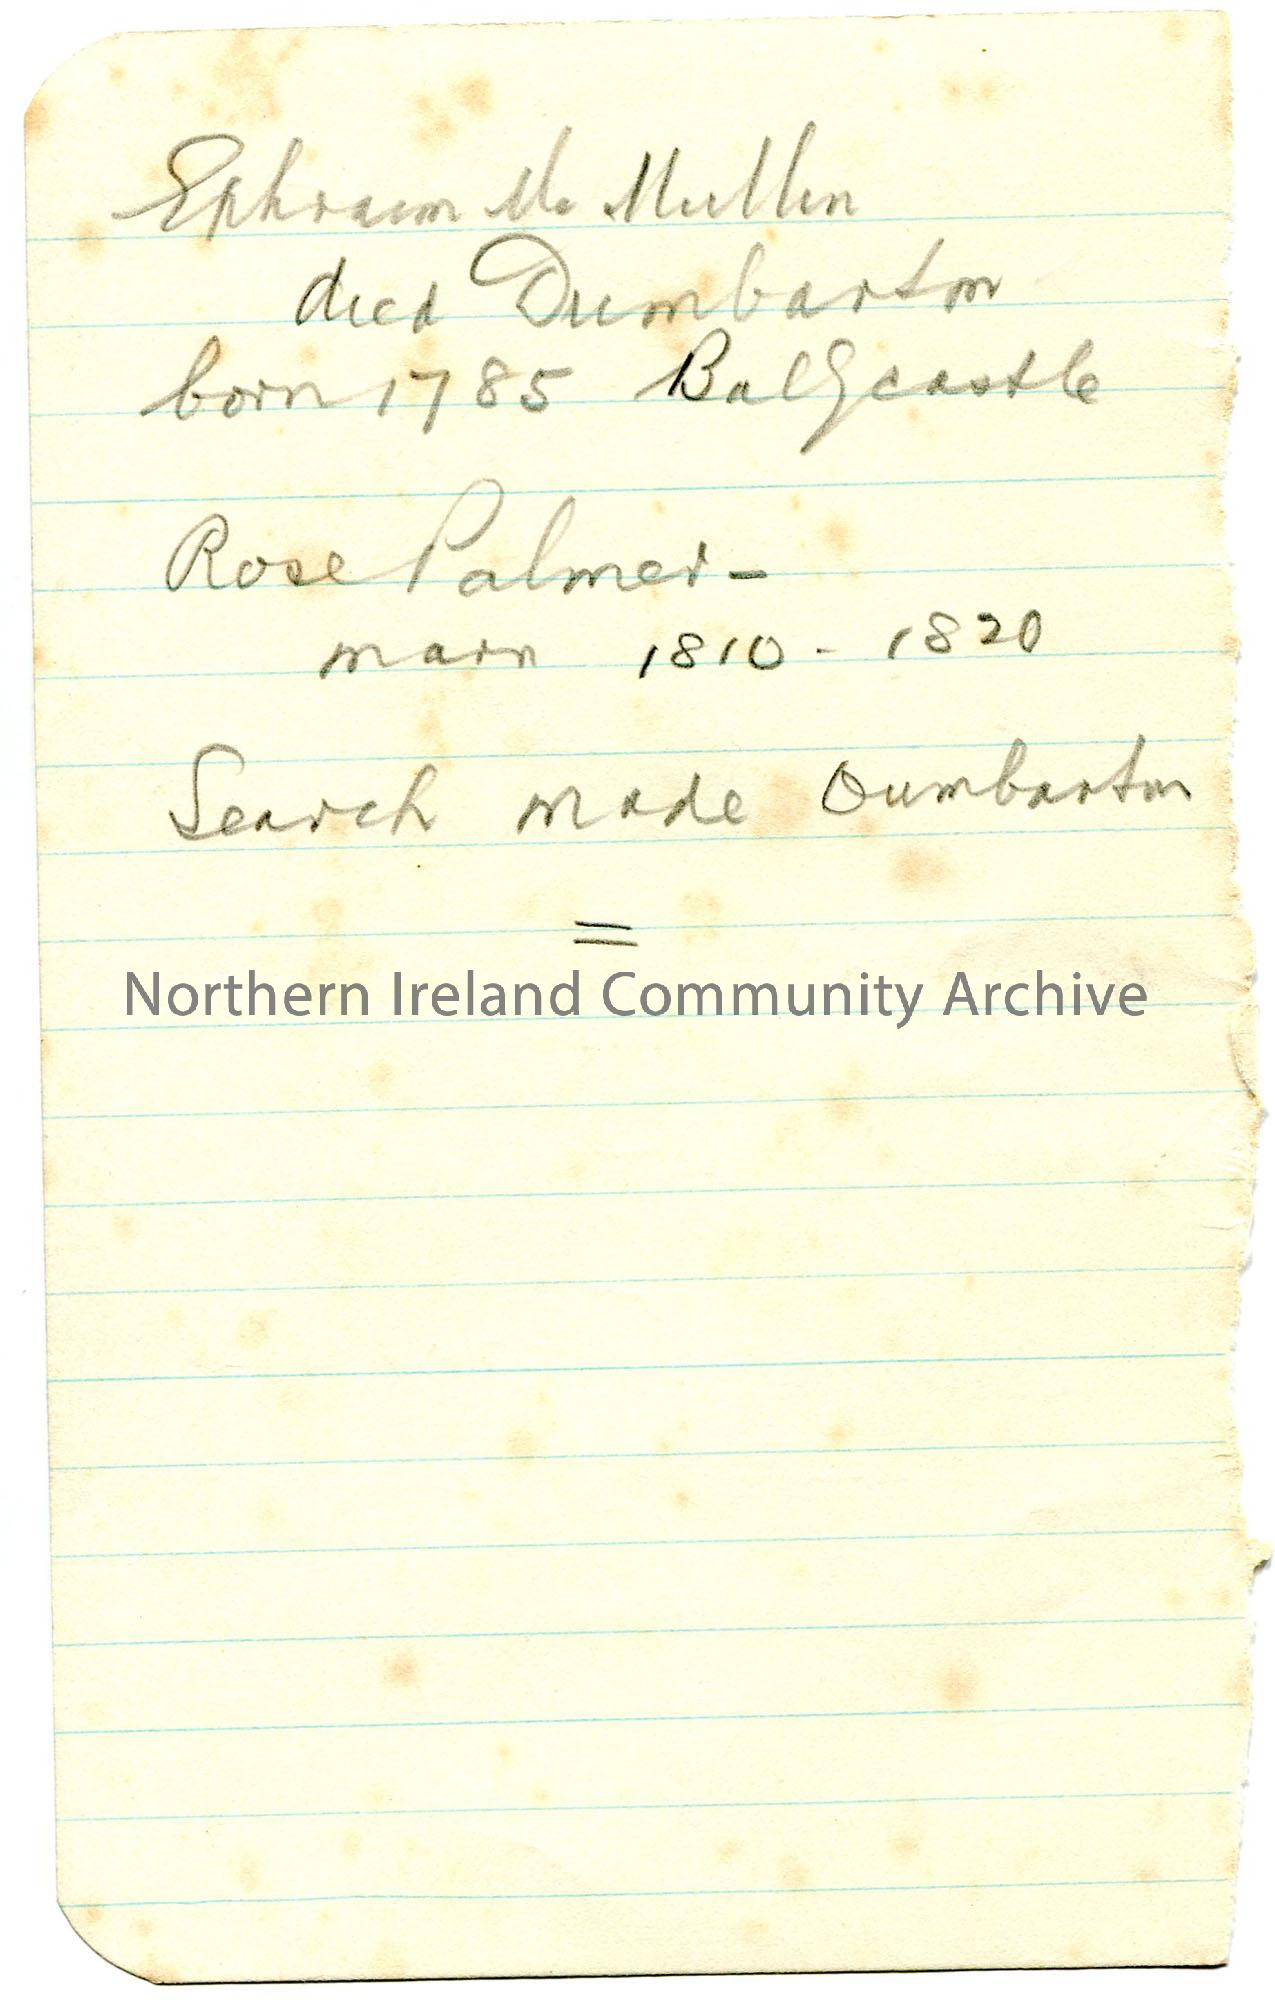 Ephraim Mc Mullen
died Dumbarton
born 1785 Ballycastle
Rose Palmer -
marn 1810 - 1820
Search made Dumbarton
=
Northern Ireland Community Archive